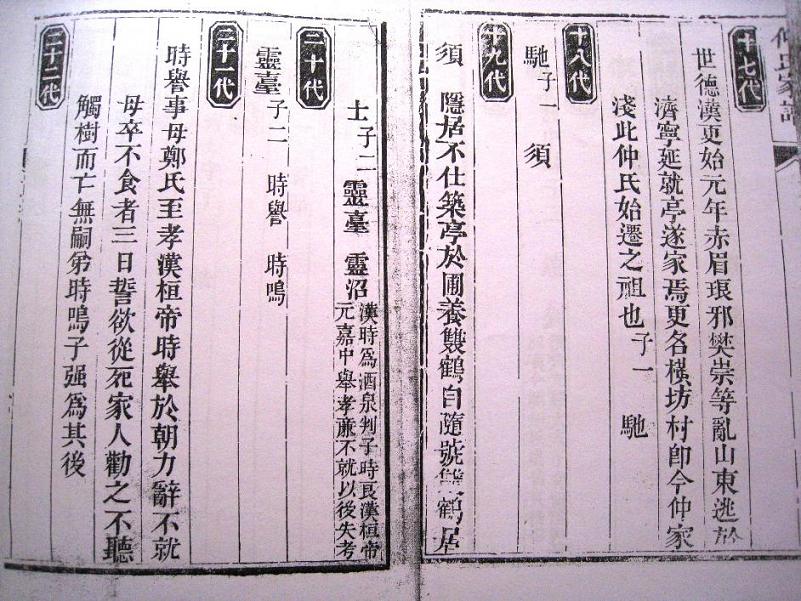 仲氏家譜
十七代
世德漢更始元年赤眉琅邪樊崇等亂山東逃於
濟寧延就亭遂家焉更名橫坊村即今仲家
淺此仲氏始遷之祖也子一 馳
十八代
馳子一 須
十九代
須 隱居不仕築亭於圃養雙鶴自隨號雙鶴居
士子二 靈臺 靈沼 漢時為酒泉判子時長漢桓帝
元嘉中舉孝廉不就以後失考
二十代
靈臺子二 時譽 時鳴
二十一代
時譽事母鄭氏至孝漢桓帝時舉於朝力辭不就
母卒不食者三日誓欲從死家人勸之不聽
觸樹而亡無嗣弟時鳴子强為其後
二十二代